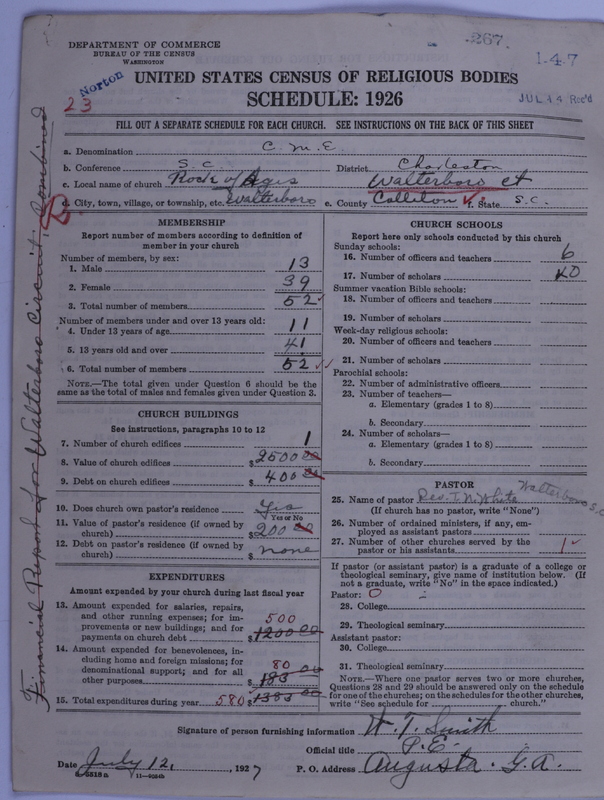 267
1-47
DEPARTMENT OF COMMERCE
BUREAU OF THE CENSUS
WASHINGTON
Norton
23
UNITED STATES CENSUS OF RELIGIOUS BODIES
SCHEDULE: 1926
JUL 14 Rec'd
FILL OUT A SEPARATE SCHEDULE FOR EACH CHURCH. SEE INSTRUCTIONS ON THE BACK OF THIS SHEET
a. Denomination C. M. E.
b. Conference S. C. District Charleston
c. Local name of church Rock of Ages Walterboro ct
d. City, town, village, or township, etc. Walterboro e. County Colleton f. State S. C.
Financial Report for Walterboro Circuit, Combined
MEMBERSHIP
Report number of members according to definition of
member in your church
Number of members, by sex:
1. Male 13
2. Female 39
3. Total number of members 52
Number of members under and over 13 years old:
4. Under 13 years of age 11
5. 13 years old and over 41
6. Total number of members 52
NOTE.—The total given under Question 6 should be the
same as the total of males and females given under Question 3.
CHURCH BUILDINGS
See instructions, paragraphs 10 to 12
7. Number of church edifices 1
8. Value of church edifices $2500 00
9. Debt on church edifices $400 00
10. Does church own pastor's residence Yes
Yes or No
11. Value of pastor's residence (if owned by
church) $200 00
12. Debt on pastor's residence (if owned by
church) $none
EXPENDITURES
Amount expended by your church during last fiscal year
13. Amount expended for salaries, repairs,
and other running expenses; for im-
provements or new buildings; and for
payments on church debt 500 $1200 00
14. Amount expended for benevolences, in-
cluding home and foreign missions; for
denominational support; and for all
other purposes 80 $183 00
15. Total expenditures during year 580 $1383 00
CHURCH SCHOOLS
Report here only schools conducted by this church
Sunday schools:
16. Number of officers and teachers 6
17. Number of scholars 40
Summer vacation Bible schools:
18. Number of officers and teachers
19. Number of scholars
Week-day religious schools:
20. Number of officers and teachers
21. Number of scholars
Parochial schools:
22. Number of administrative officers
23. Number of teachers—
a. Elementary (grades 1 to 8)
b. Secondary
24. Number of scholars—
a. Elementary (grades 1 to 8)
b. Secondary
PASTOR
25. Name of pastor Rev. T. N. White Walterboro S.C.
(If church has no pastor, write "None")
26. Number of ordained ministers, if any, em-
ployed as assistant pastors
27. Number of other churches served by the
pastor or his assistants 1
If pastor (or assistant pastor) is a graduate of a college or
theological seminary, give name of institution below. (If
not a graduate, write "No" in the space indicated.)
Pastor: 0
28. College
29. Theological seminary
Assistant pastor:
30. College
31. Theological seminary
NOTE.—Where one pastor serves two or more churches,
Questions 28 and 29 should be answered only on the schedule
for one of the churches; on the schedules for the other churches,
write "See schedule for church."
Signature of person furnishing information W. T. Smith
Official title P. E.
Date July 12, 1927 P. O. Address Augusta. G. A.
8—5518 a 11—9084b